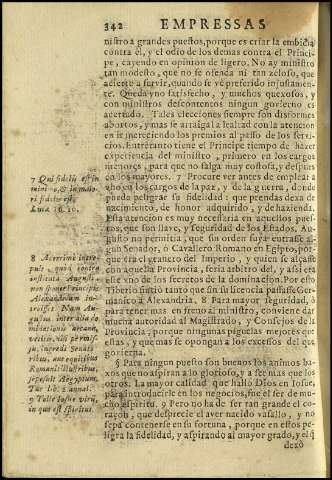 342 EMPRESSAS
nistro a grandes puestos, porque es criar la embidia
contra él, y el odio de los demas contra el Princi-
pe, cayendo en opinion de ligero. No ay ministro
tan modesto, que no se ofenda ni tan zeloso, que
acierte a servir, quando se vé preferido injustamen-
te. Queda uno satisfecho, y muchos quexosos, y
con ministros descontentos ningun govierno es
acertado. Tales elecciones siempre son disformes
abortos, y mas se arraiga la lealtad con la atencion
en ir mereciendo los premios al passo de los servi-
cios. Entretanto tiene el Principe tiempo de hazer
experiencia del ministro, primero en los cargos
menores, para que no salga muy costosa, y despues
en los mayores. 7 Procure ver antes de emplear a
uno en los cargos de la paz, y de la guerra, donde
puede peligrar su fidelidad, que prendas dexa de
nacimiento, de honor adquirido, y de hazienda.
Esta atencion es muy necessaria en aquellos pues-
tos, que son llave, y seguridad de los Estados. Au-
gusto no permitia, que sin orden suya entrasse al-
gun Senador, ó Cavallero Romano en Egipto, por-
que era el granero del Imperio, y quien se alçasse
con aquella Provincia, seria arbitro dél, y assi era
este uno de los secretos de la dominacion. Por esto
Tiberio sintió tanto que sin su licencia passasse Ger-
manico a Alexandria. 8 Para mayor seguridad, ó
para tener mas en freno al ministro, conviene dar
mucha autoridad al Magistrado, y Consejos de la
Provincia, porque ningunas piguelas mejores que
estas, y que mas se opongan a los excessos del que
govierna.
§ Para ningun puesto son buenos los animos ba-
xos que no aspiran a lo glorioso, y a ser mas que los
otros. La mayor calidad que halló Dios en Josue,
para introducirle en los negocios, fue el ser de mu-
cho espiritu. 9 Pero no ha de ser tan grande el co-
raçon, que desprecie el aver nacido vasallo, y no
sepa contenerse en su fortuna, porque en estos pe-
ligra la fidelidad, y aspirando al mayor grado, y el q̃
dexó
7 Qui fidelis est in
minimo, & in majo-
ri fidelis est.
Luca 16. 10.
8 Acerrimè incre-
puit, quod contra
instituta Augusti,
non sponte Principis
Alexandriam in-
troisset. Nam Au-
gustus inter alia do-
minationis arcana,
vetitis, nisi permis-
su, ingredi Senato-
ribus, aut equitibus
Romanis Illustribus,
seposuit Ægyptum.
Tac. lib. 2. annal.
9 Tolle Josue virũ,
in quo est spiritus.